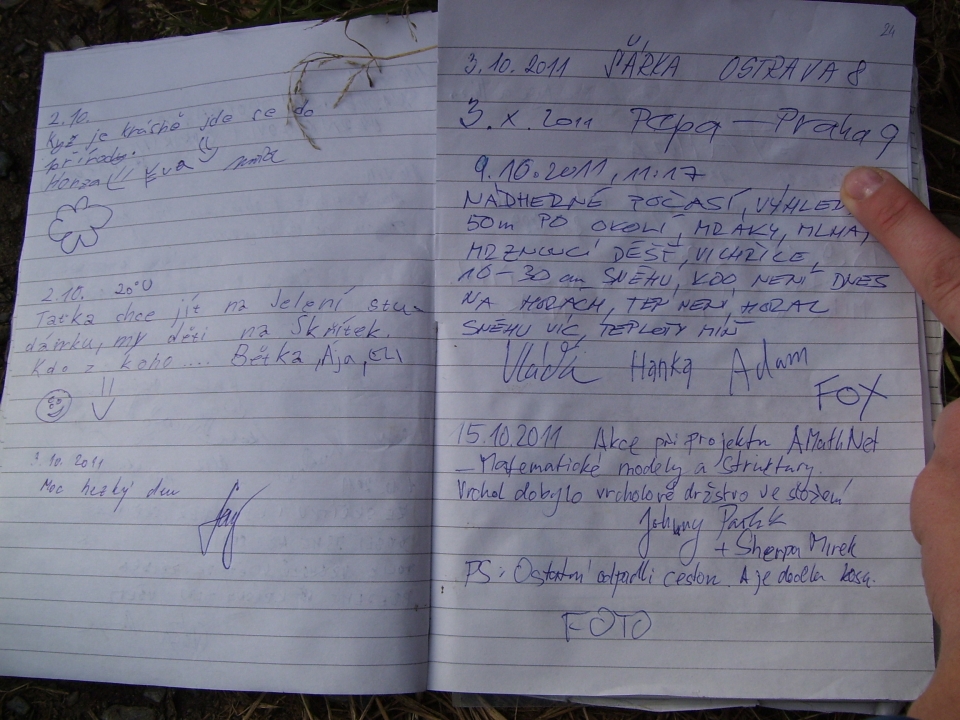 2.10.
Když je krásně jde se do
přírody.
Honza Eva
2.10. 20°C
Taťka chce jít na Jelení stu-
dánku, my děti na Škřítek.
Kdo z koho.... Bětka, Ája,
3.10.2011
Moc hezký den
24
3.10.2011 ŠÁRKA OSTRAVA 8
3.X.2011 Pepa - Praha 9
9.10.2011, 11:17
NÁDHERNÉ POČASÍ, VÝHLED
50m PO OKOLÍ, MRAKY, MLHA,
MRZNOUCÍ DÉŠŤ, VICHŘICE,
10-30 cm SNĚHU, KDO NENÍ DNES
NA HORÁCH, TEN NENÍ HORAL
SNĚHU VÍC, TEPLOTY MÍŇ
Vláďa Hanka Adam
FOX
15.10.2011 Akce při projektu AMathNet
- Matematické modely a struktury.
Vrchol dobylo vrcholové družstvo ve složení
Johnny
+ Sherpa Mirek
PS: Ostatní odpadli cestou. A je docela kosa.
FOTO